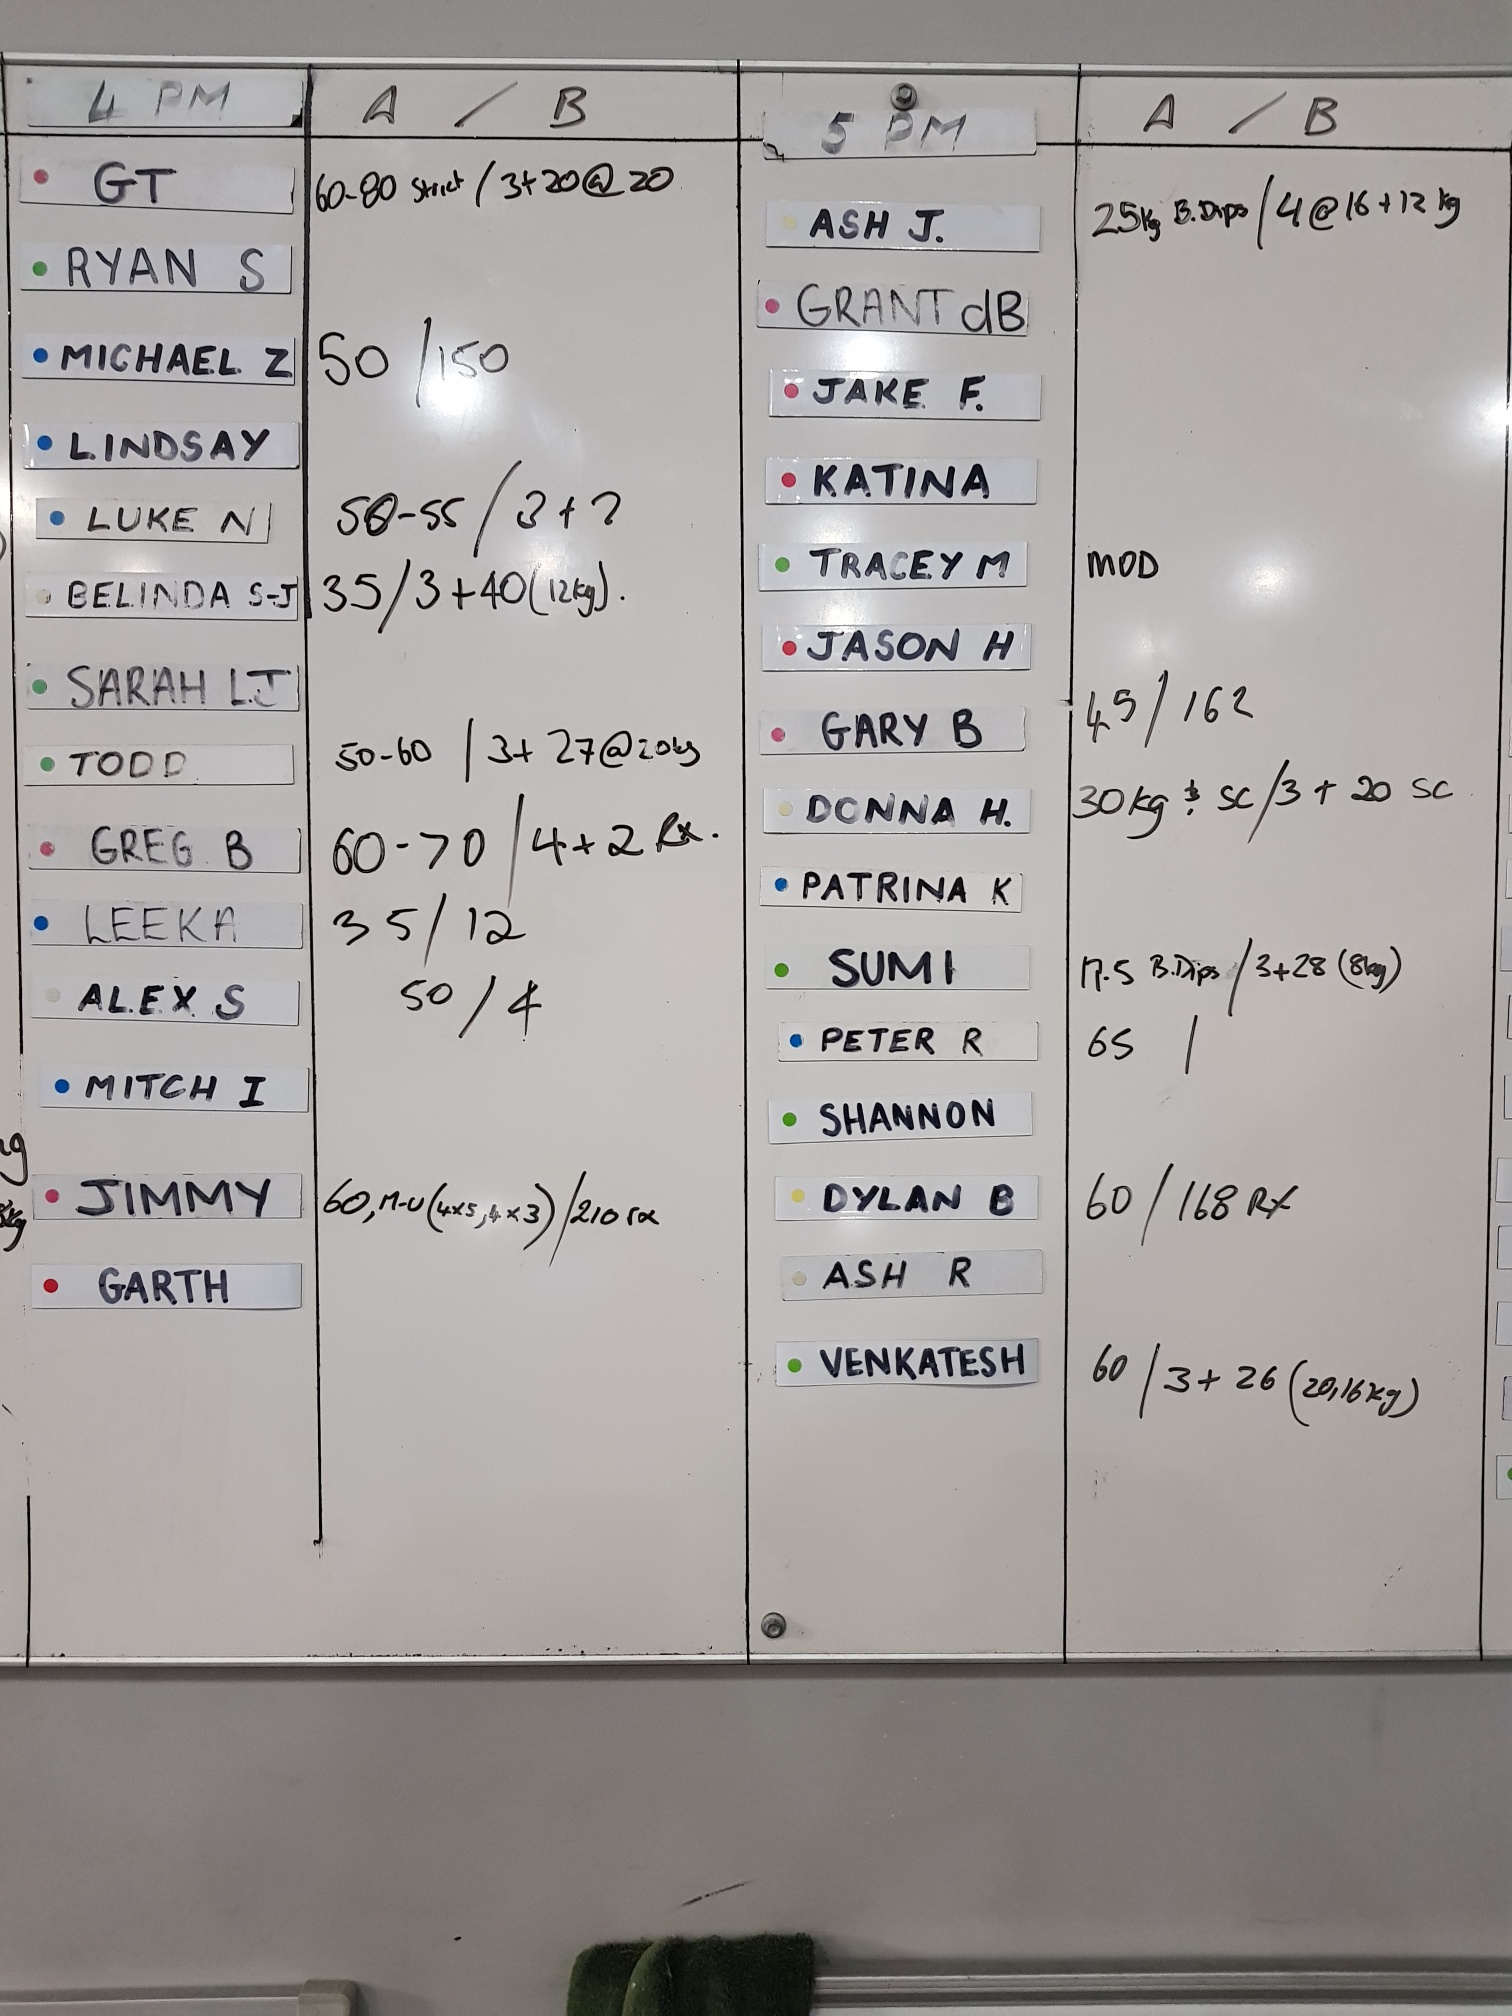 4 PM A / B
GT 60-80 Strict / 3+20@20
RYAN S
MICHAEL Z 50 / 150
LINDSAY
LUKE N 50-55 / 3+?
BELINDA S-J 35/3+40(12kg).
SARAH LJ
TODD 50-60 / 3+27@20kg
GREG B 60-70 / 4+2 Rx.
LEEKA 35/12
ALEX S 50 / 4
MITCH I
JIMMY 60, M-U (4x5, 4x3)/210 rx
GARTH
5 PM A / B
ASH J. 25kg B.Dips / 4@16+12kg
GRANT dB
JAKE F.
KATINA
TRACEY M MOD
JASON H
GARY B 45/162
DONNA H. 30kg SC/3+20 SC
PATRINA K
SUMI 17.5 B.Dips / 3+28 (8kg)
PETER R 65 /
SHANNON
DYLAN B 60 / 168 RX
ASH R
VENKATESH 60 / 3+26 (20,16kg)